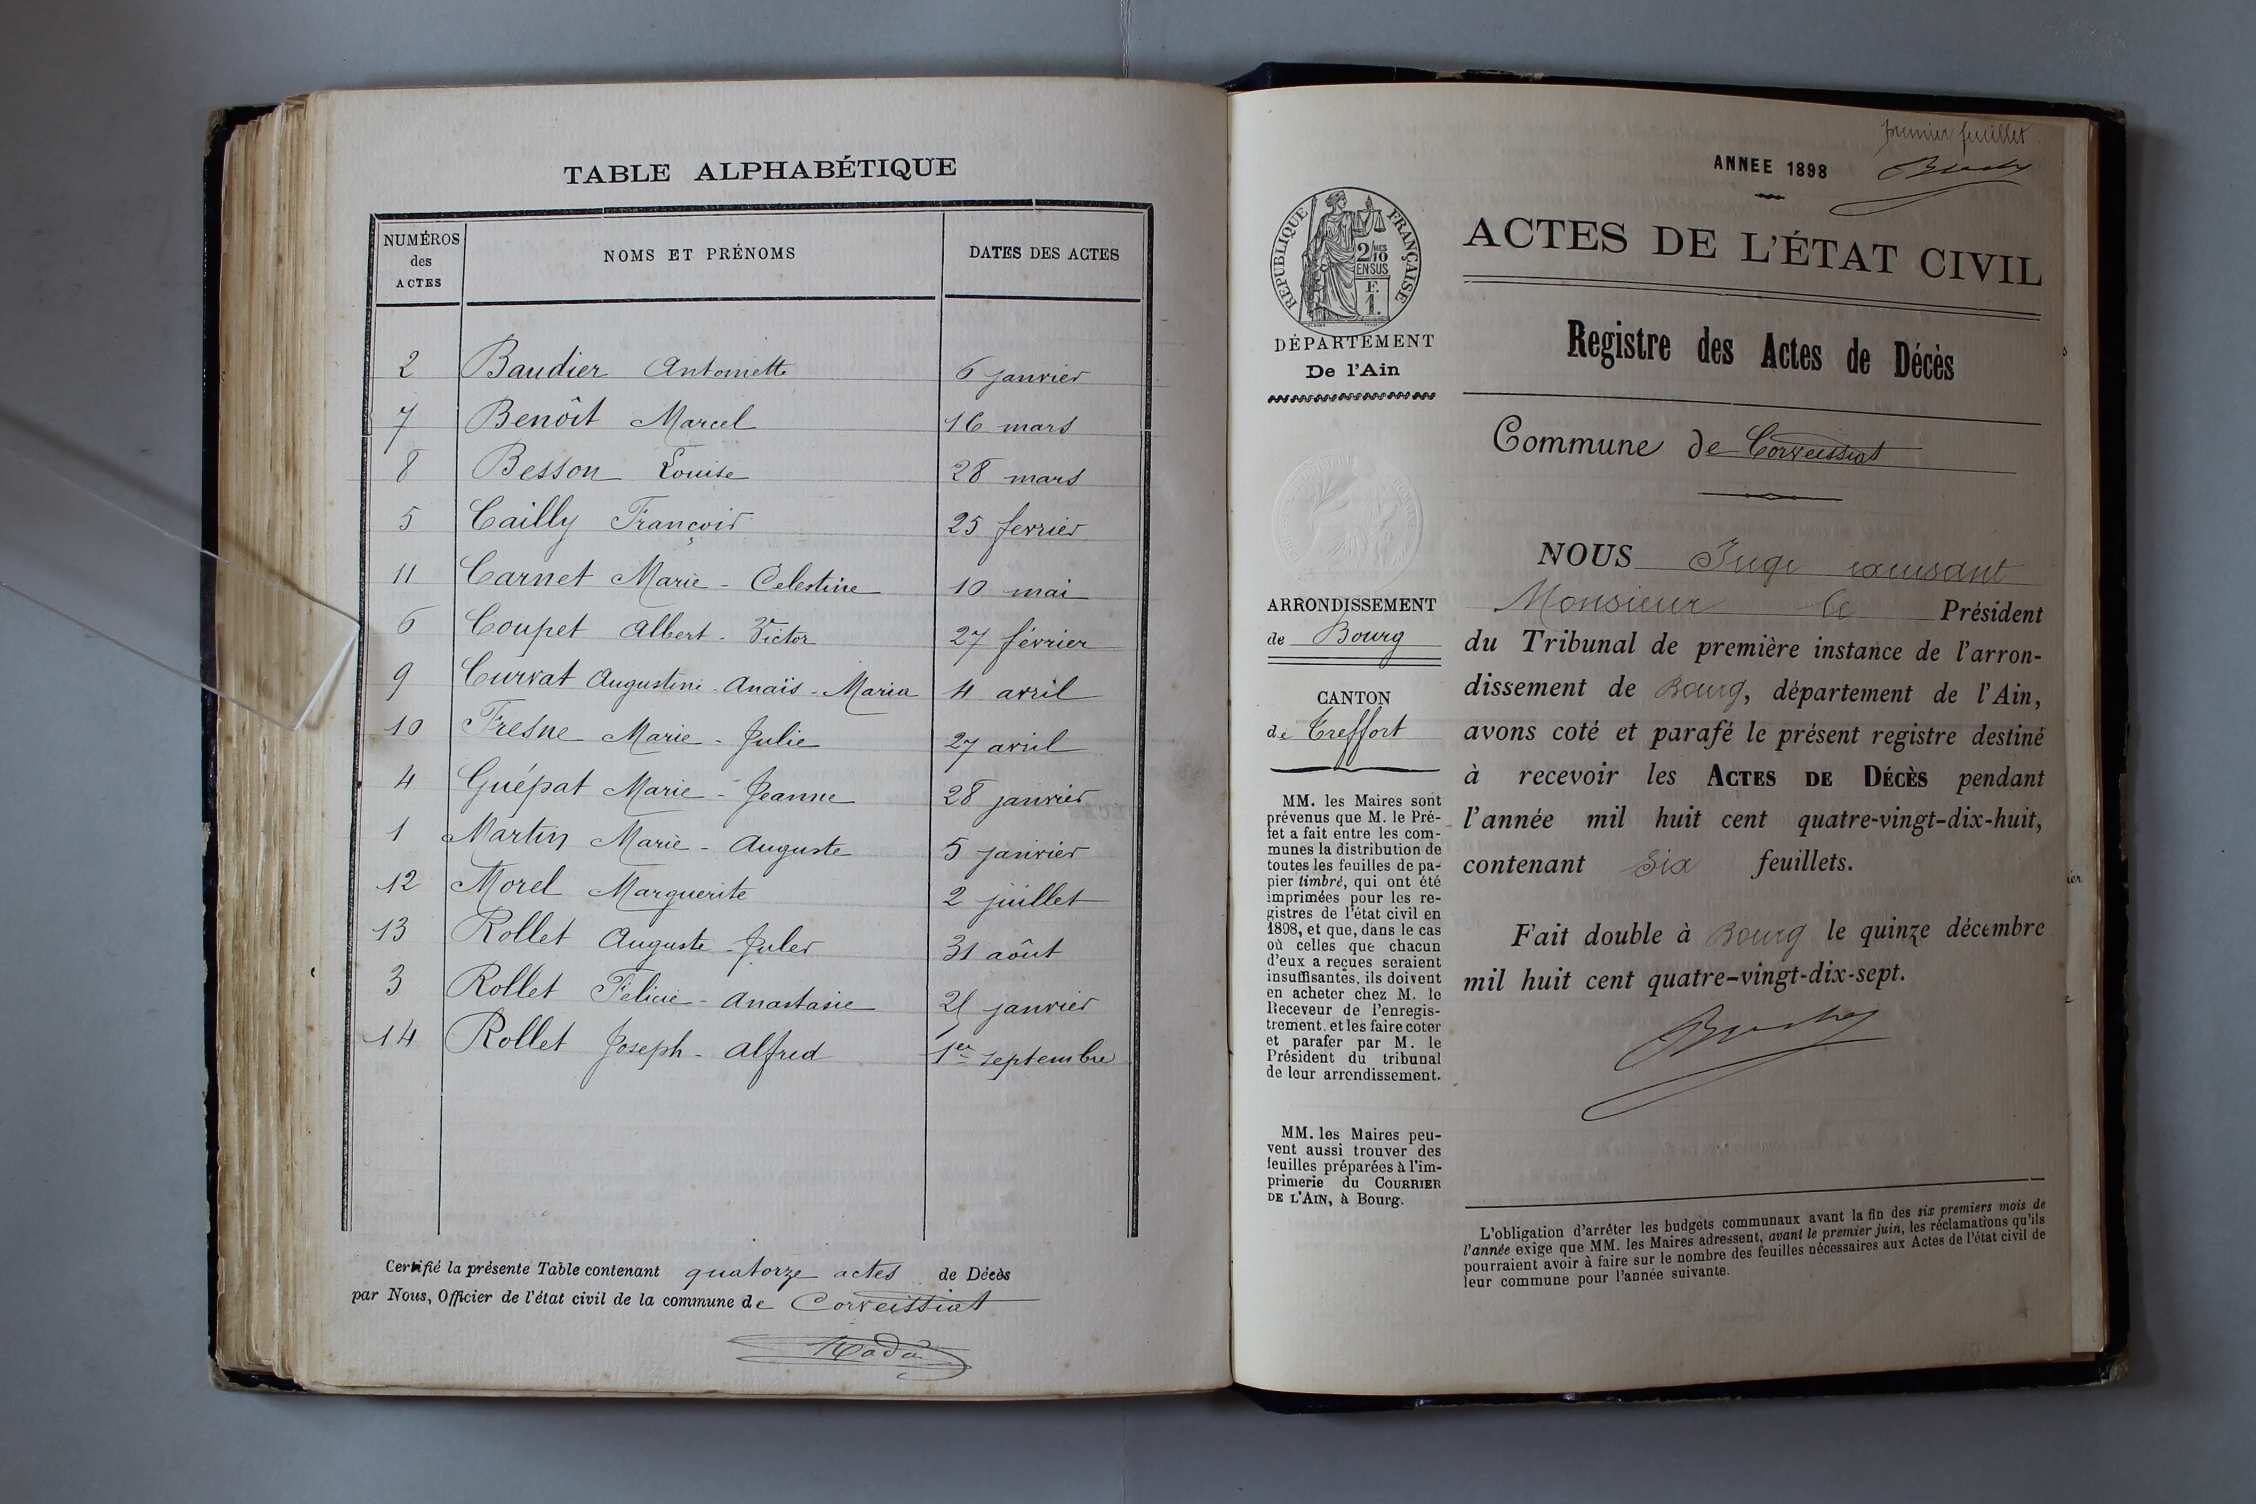 TABLE ALPHABÉTIQUE
NUMÉROS des ACTES NOMS ET PRÉNOMS DATES DES ACTES
2 Baudier Antoinette 6 janvier
7 Benôit Marcel 16 mars
8 Besson Louise 28 mars
5 Cailly François 25 fevrier
11 Carnet Marie - Celestine 10 mai
6 Coupet Albert - Victor 27 février
9 Curvat Augustine - Anaïs - Maria 4 avril
10 Fresne Marie - Julie 27 avril
4 Guépat Marie - Jeanne 28 janvier
1 Martin Marie - Auguste 5 janvier
12 Morel Marguerite 2 juillet
13 Rollet Auguste - Jules 31 aôut
3 Rollet Félicie - Anastasie janvier
14 Rollet Joseph - Alfred 1er septembre
Certifié la présente Table contenant quatorze actes de Décès
par Nous, Officier de l'état civil de la commune de Corveissiat
premier feuillet
ANNEE 1898
RÉPUBLIQUE FRANÇAISE
2/MES 10
EN SUS
F.
1.
DÉPARTEMENT
De l'Ain
ARRONDISSEMENT
de Bourg
CANTON
de Treffort
MM. les Maires sont
prévenus que M. le Pré-
fet a fait entre les com-
munes la distribution de
toutes les feuilles de pa-
pier timbré, qui ont été
imprimées pour les re-
gistres de l'état civil en
1898, et que, dans le cas
où celles que chacun
d'eux a reçues seraient
insuffisantes, ils doivent
en acheter chez M. le
Receveur de l'enregis-
trement, et les faire coter
et parafer par M. le
Président du tribunal
de leur arrondissement.
MM. les Maires peu-
vent aussi trouver des
feuilles préparées à l'im-
primerie du COURRIER
DE L'AIN, à Bourg.
ACTES DE L'ÉTAT CIVIL
Registre des Actes de Décès
Commune de Corveissiat
NOUS Juge remplaçant
Monsieur le Président
du Tribunal de première instance de l'arron-
dissement de Bourg, département de l'Ain,
avons coté et parafé le présent registre destiné
à recevoir les ACTES DE DÉCÈS pendant
l'année mil huit cent quatre-vingt-dix-huit,
contenant six feuillets.
Fait double à Bourg le quinze décembre
mil huit cent quatre-vingt-dix-sept.
L'obligation d'arrêter les budgets communaux avant la fin des six premiers mois de
l'année exige que MM. les Maires adressent, avant le premier juin, les réclamations qu'ils
pourraient avoir à faire sur le nombre des feuilles nécessaires aux Actes de l'état civil de
leur commune pour l'année suivante.